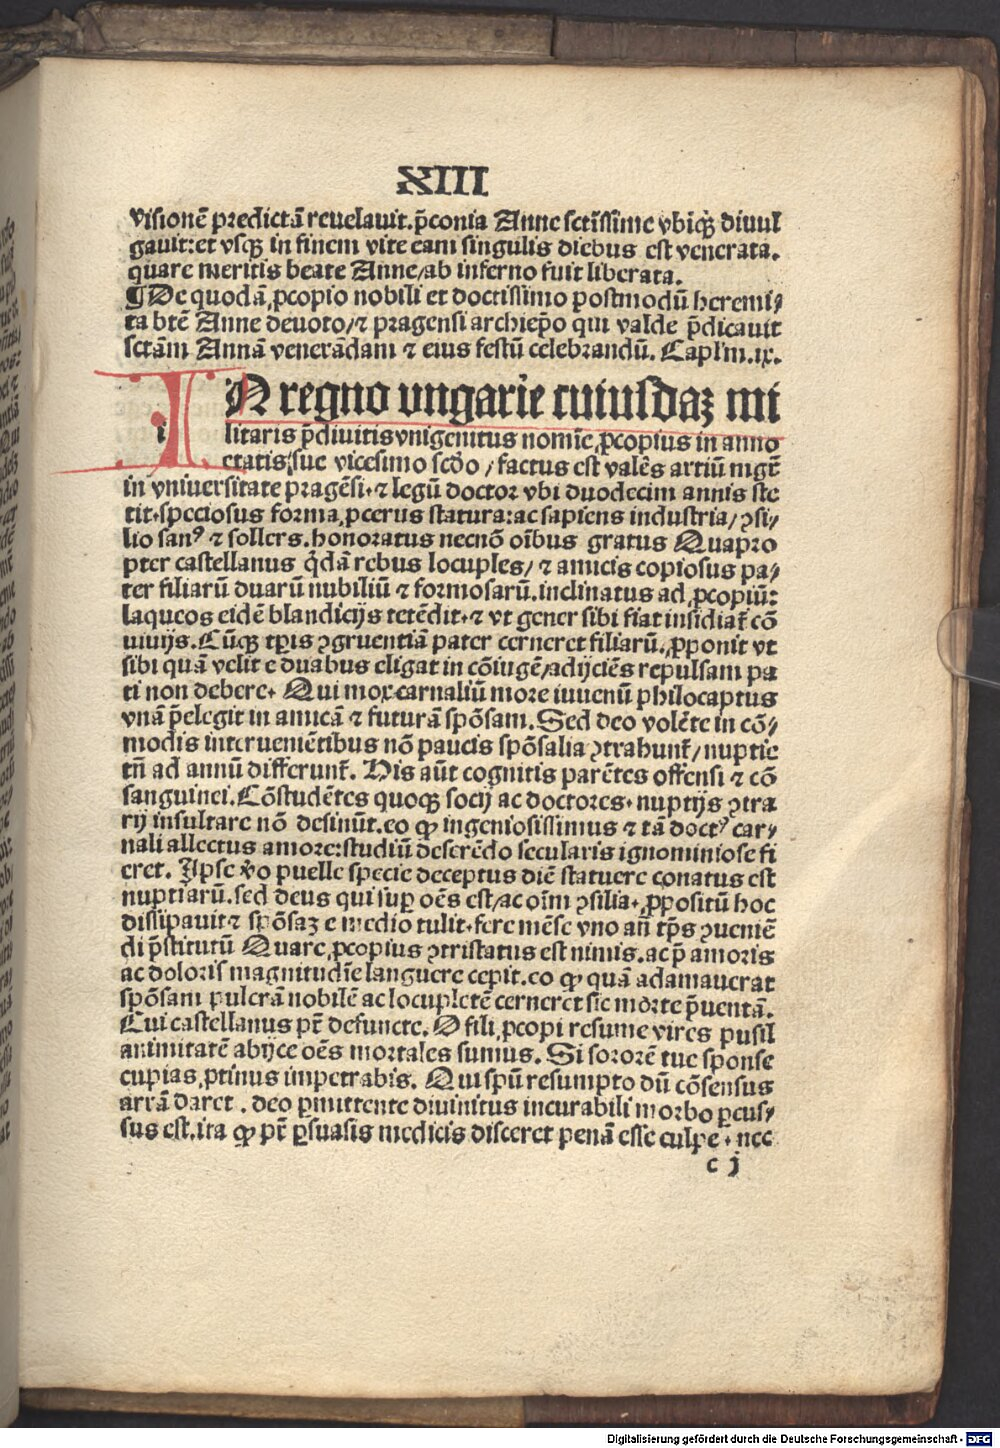 XIII
visionē predictā reuelauit. p̄conia Anne sctissime vbiq̄ diuul
gauit: et vsq̄ in finem vite eam singulis diebus est venerata.
quare meritis beate Anne/ ab inferno fuit liberata.
¶ De quodā ꝓcopio nobili et doctissimo postmodū heremi⸗
ta btē Anne deuoto/ ⁊ pragensi archiep̄o qui valde p̄dicauit
sctām Annā venerādam ⁊ eius festū celebrandū. Capl'm .ix.
i
IN regno vngarie cuiusdaꝫ mi
litaris p̄diuitis vnigenitus nomīe ꝓcopius in anno
etatis sue vicesimo scdo / factus est valēs artiū mgr̄
in vniuersitate pragēsi. ⁊ legū doctor vbi duodecim annis ste
tit. speciosus forma, ꝓcerus statura: ac sapiens industria/ ꝯsi⸗
lio sanꝰ ⁊ sollers. honoratus necnō oībus gratus Quapro
pter castellanus q̄dā rebus locuples/ ⁊ amicis copiosus pa⸗
ter filiarū duarū nubiliū ⁊ formosarū. inclinatus ad ꝓcopiū:
laqueos eidē blandicijs tetēdit. ⁊ vt gener sibi fiat insidiat̄ cō
uiuijs. Cūq̄ tp̄is ꝯgruentiā pater cerneret filiarū. ꝓponit vt
sibi quā velit e duabus eligat in cōiugē/ adijciēs repulsam pa
ti non debere. Qui mox carnaliū more iuuenū philocaptus
vnā p̄elegit in amicā ⁊ futurā spōsam. Sed deo volēte in cō⸗
modis interueniētibus nō paucis spōsalia ꝯtrahunt̄/ nuptie
tn̄ ad annū differunt̄. His aūt cognitis parētes offensi ⁊ cō
sanguinei. Cōstudētes quoq̄ socij ac doctores. nuptijs ꝯtra
rij insultare nō desinūt. eo ꝙ ingeniosissimus ⁊ tā doctꝰ car⸗
nali allectus amore: studiū deserēdo secularis ignominiose fi
eret. Ipse v̄o puelle specie deceptus diē statuere conatus est
nuptiarū. sed deus qui sup oēs est/ ac oīm ꝯsilia. ꝓpositū hoc
dissipauit ⁊ spōsaꝫ e medio tulit. fere mēse vno an̄ tp̄s ꝯueniē
di p̄stitutū Quare ꝓcopius ꝯtristatus est nimis. ac p̄ amoris
ac doloris magnitudīe languere cepit. eo ꝙ quā adamauerat
spōsam pulcrā nobilē ac locupletē cerneret sic morte p̄uentā.
Cui castellanus pr̄ defuncte. O fili ꝓcopi resume vires pusil
animitatē abijce oēs mortales sumus. Si sororē tue sponse
cupias, ꝓtinus impetrabis. Qui spū resumpto dū cōsensus
arrā daret . deo ꝑmittente diuinitus incurabili morbo ꝑcus⸗
sus est. ita ꝙ pr̄ ꝑsuasis medicis disceret penā esse culpe . nec
c j
Digitalisierung gefördert durch die Deutsche Forschungsgemeinschaft - DFG